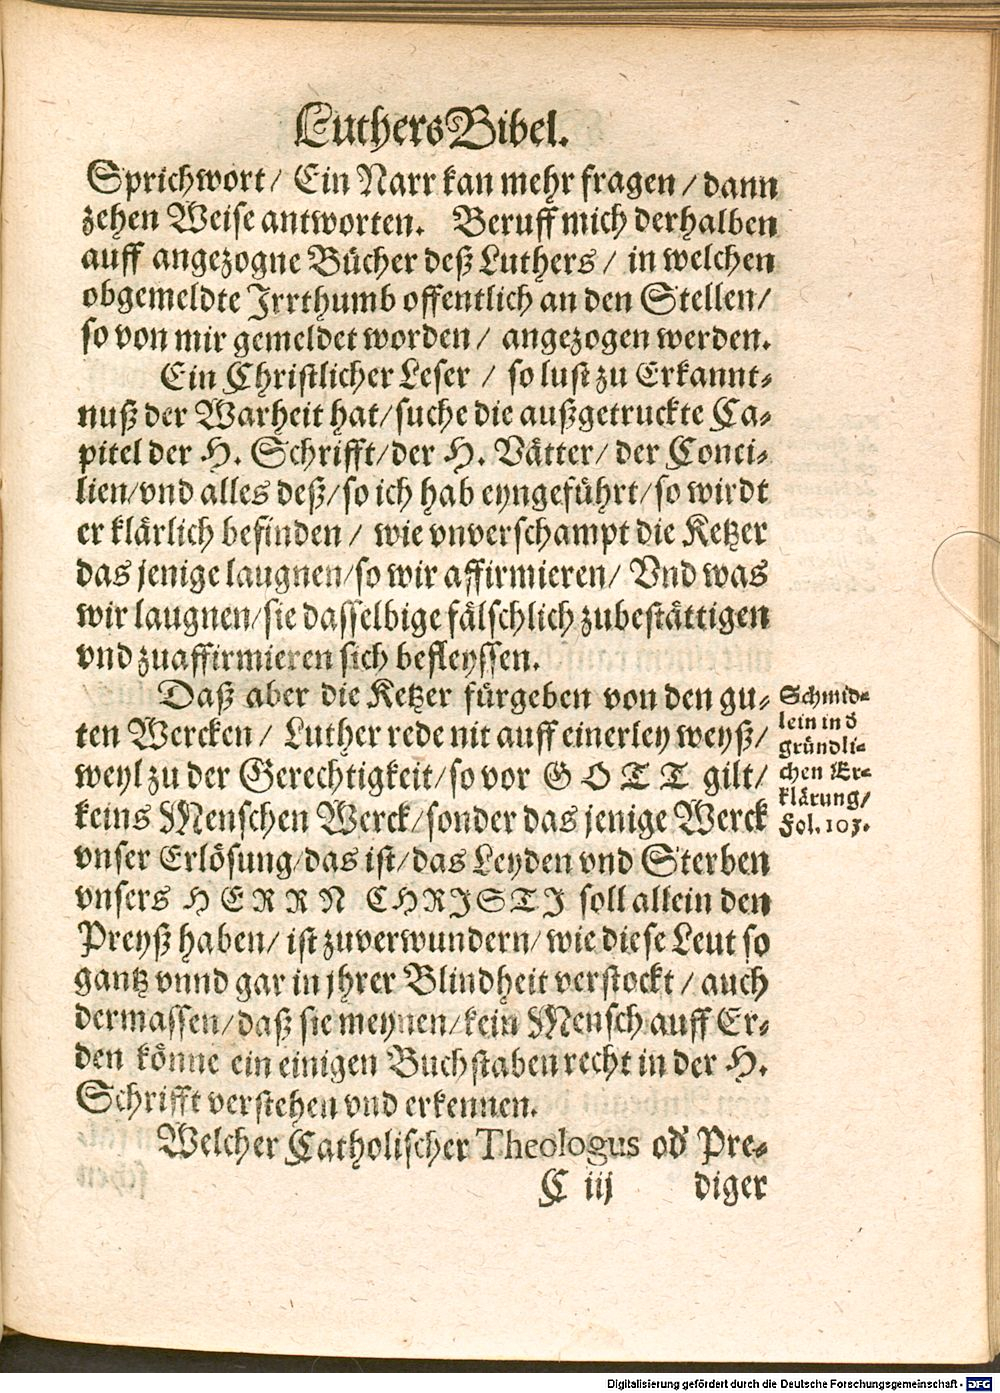 Luthers Bibel.
Sprichwort/ Ein Narr kan mehr fragen/ dann
zehen Weise antworten. Beruff mich derhalben
auff angezogne Bücher deß Luthers/ in welchen
obgemeldte Irrthumb offentlich an den Stellen/
so von mir gemeldet worden/ angezogen werden.
Ein Christlicher Leser/ so lust zu Erkannt-
nuß der Warheit hat/ suche die außgetruckte Ca-
pitel der H. Schrifft/ der H. Vätter/ der Conci-
lien/ vnd alles deß/ so ich hab eyngeführt/ so wirdt
er klärlich befinden/ wie vnverschampt die Ketzer
das jenige laugnen/ so wir affirmieren/ Vnd was
wir laugnen/ sie dasselbige fälschlich zubestättigen
vnd zuaffirmieren sich befleyssen.
Daß aber die Ketzer fürgeben von den gu-
ten Wercken/ Luther rede nit auff einerley weyß/
weyl zu der Gerechtigkeit/ so vor GOTT gilt/
keins Menschen Werck/ sonder das jenige Werck
vnser Erlösung/ das ist/ das Leyden vnd Sterben
vnsers HERRN CHRISTI soll allein den
Preyß haben/ ist zuverwundern/ wie diese Leut so
gantz vnnd gar in jhrer Blindheit verstockt/ auch
dermassen/ daß sie meynen/ kein Mensch auff Er-
den könne ein einigen Buchstaben recht in der H.
Schrifft verstehen vnd erkennen.
Welcher Catholischer Theologus od' Pre-
C iij diger
Schmid-
lein in d'
gründli-
chen Er-
klärung/
Fol. 103.
Digitalisierung gefördert durch die Deutsche Forschungsgemeinschaft - DFG